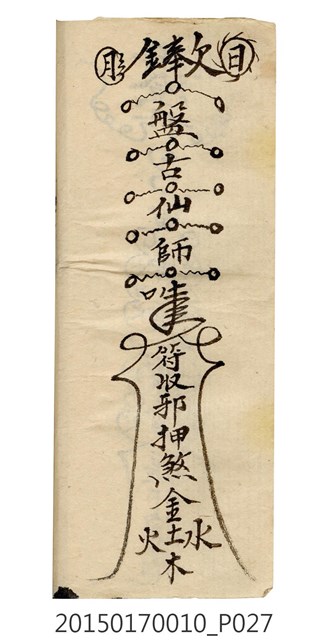 日 奉 月
盤
古
仙
師
符
收
邪
押
煞
金
水土火
木
20150170010_P027